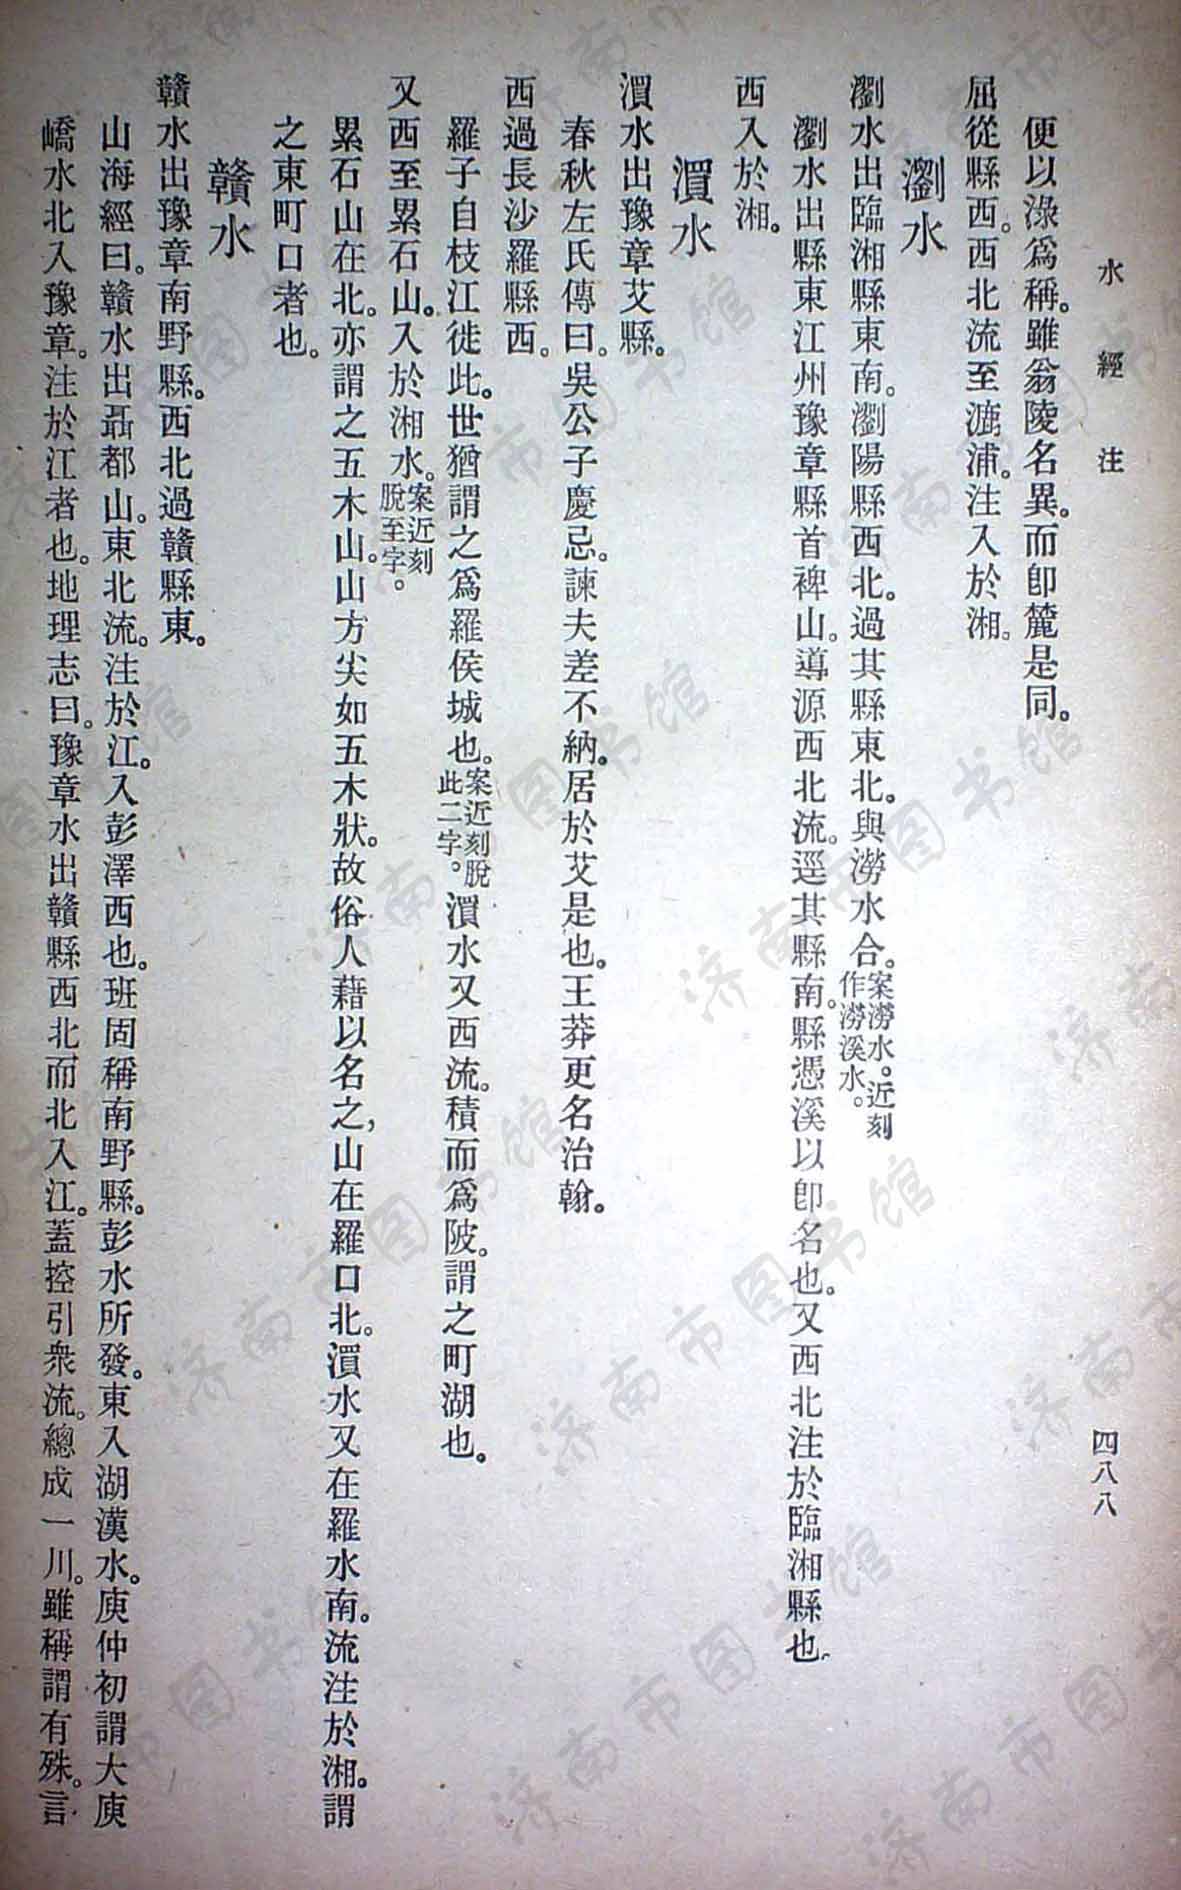 水經注
四八八
便以淥爲稱。雖翁陵名異。而卽麓是同。
屈從縣西。西北流至漉浦。注入於湘。
瀏水
瀏水出臨湘縣東南。瀏陽縣西北。過其縣東北。與澇水合。案澇水。近刻作澇溪水。
瀏水出縣東江州豫章縣首裨山。導源西北流。逕其縣南。縣憑溪以卽名也。又西北注於臨湘縣也。
西入於湘。
㵋水
㵋水出豫章艾縣。
春秋左氏傳曰。吳公子慶忌。諫夫差不納。居於艾是也。王莽更名治翰。
西過長沙羅縣西。
羅子自枝江徙此。世猶謂之爲羅侯城也。案近刻脫此二字。㵋水又西流。積而爲陂。謂之町湖也。
又西至累石山。入於湘水。案近刻脫至字。
累石山在北。亦謂之五木山。山方尖如五木狀。故俗人藉以名之，山在羅口北。㵋水又在羅水南。流注於湘。謂
之東町口者也。
贛水
贛水出豫章南野縣。西北過贛縣東。
山海經曰。贛水出聶都山。東北流。注於江。入彭澤西也。班固稱南野縣。彭水所發。東入湖漢水。庾仲初謂大庾
嶠水北入豫章。注於江者也。地理志曰。豫章水出贛縣西北而北入江。蓋控引衆流。總成一川。雖稱謂有殊。言